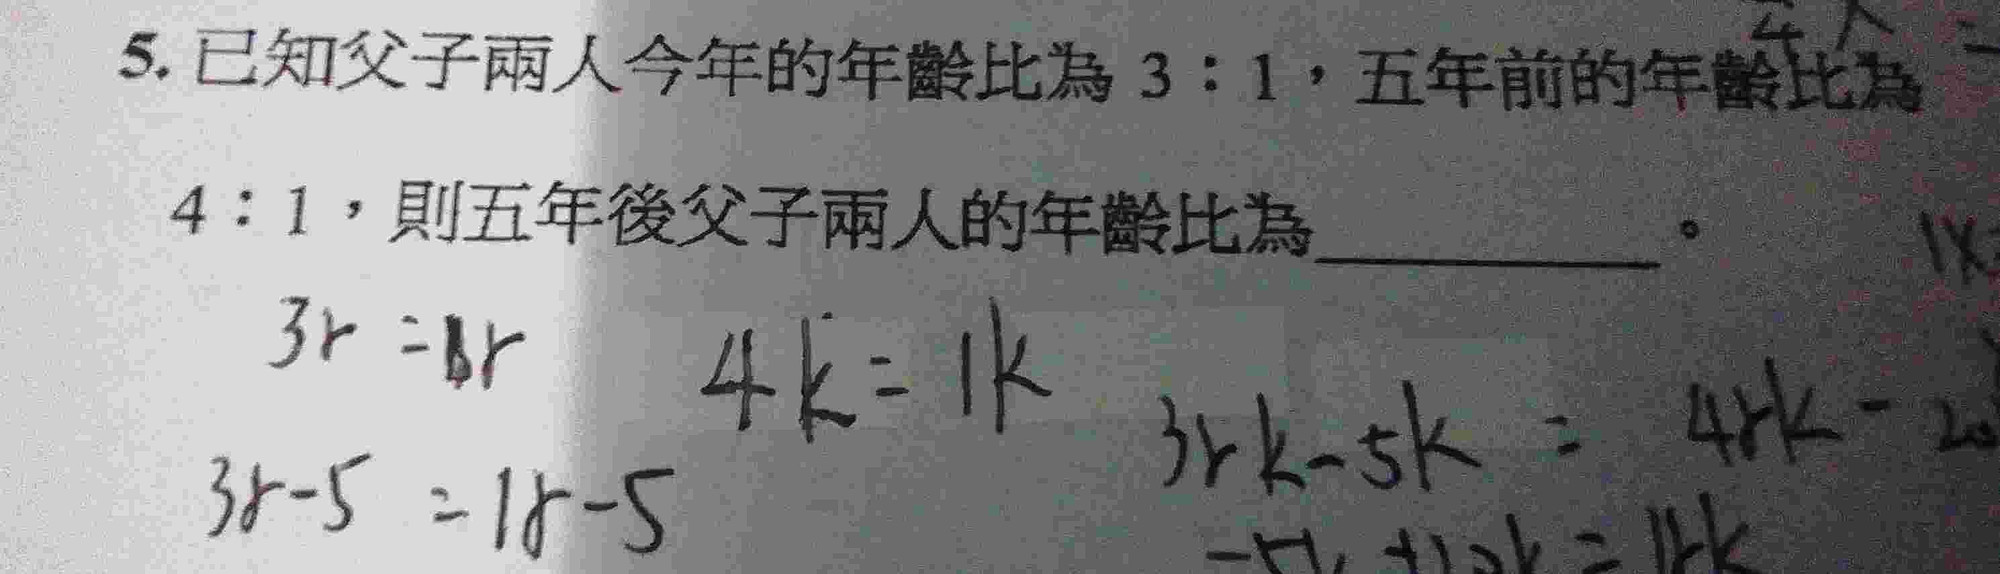 5. 已知父子兩人今年的年齡比為 3：1，五年前的年齡比為
4：1，則五年後父子兩人的年齡比為________。
3r = 1r
4k = 1k
3rk-5k = 4rk-20
3r-5 = 1r-5